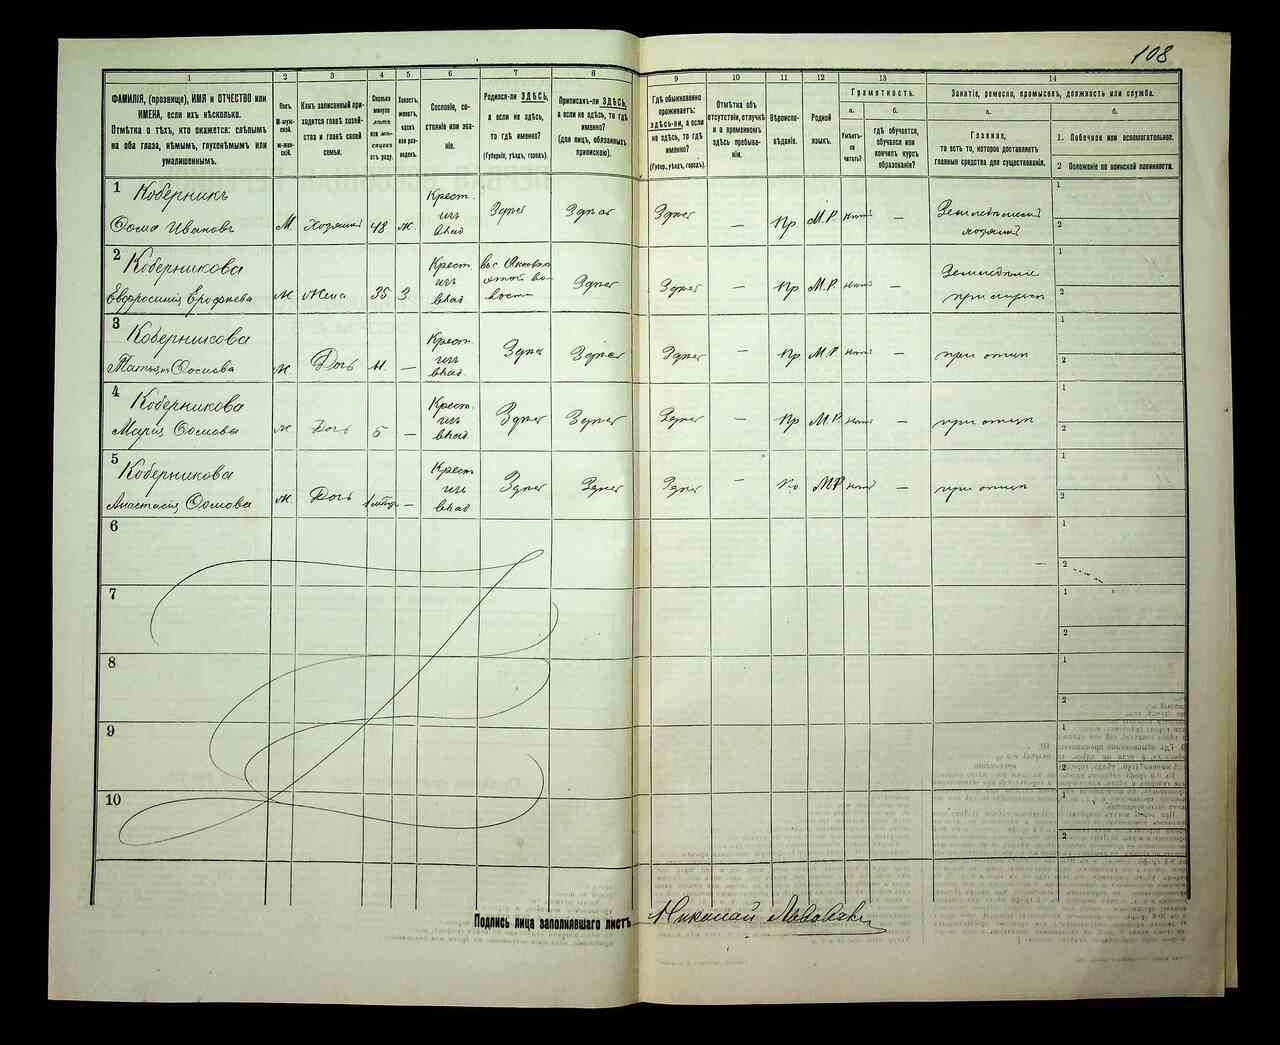 108
1 2 3 4 5 6 7 8 9 10 11 12 13 14
ФАМИЛІЯ, (прозвище), ИМЯ и ОТЧЕСТВО или
ИМЕНА, если ихъ нѣсколько.
Отмѣтка о тѣхъ, кто окажется: слѣпымъ
на оба глаза, нѣмымъ, глухонѣмымъ или
умалишеннымъ.
Полъ.
М-мужской.
Ж-женскій.
Какъ записанный при-
ходится главѣ хозяй-
ства и главѣ своей
семьи.
Сколько
минуло
лѣтъ
или мѣ-
сяцевъ
отъ роду.
Холостъ,
женатъ,
вдовъ
или раз-
веденъ.
Сословіе, со-
стояніе или зва-
ніе.
Родился-ли ЗДѢСЬ,
а если не здѣсь,
то гдѣ именно?
(Губернія, уѣздъ, городъ).
Приписанъ-ли ЗДѢСЬ,
а если не здѣсь, то гдѣ
именно?
(для лицъ, обязанныхъ
припискою).
Гдѣ обыкновенно
проживаетъ:
здѣсь-ли, а если
не здѣсь, то гдѣ
именно?
(Губер., уѣздъ, городъ).
Отмѣтка объ
отсутствіи, отлучкѣ
и о временномъ
здѣсь пребыва-
ніи.
Вѣроиспо-
вѣданіе.
Родной
языкъ.
Грамотность.
а.
Умѣетъ-
ли
читать?
б.
гдѣ обучается,
обучался или
кончилъ курсъ
образованія?
Занятіе, ремесло, промыселъ, должность или служба.
а.
Главное,
то есть то, которое доставляетъ
главныя средства для существованія.
б.
1. Побочное или вспомогательное.
2 Положеніе по воинской повинности.
1 Коберникъ
Ѳома Ивановъ М. Хозяинъ 48 ж. Крест. изъ влад Здѣсь Здѣсь Здѣсь — Пр М.Р. нѣтъ — 1 2
2 Коберникова
Евфросинія Ерофѣева ж Жена 35 З. Крест изъ влад Здѣсь Здѣсь — Пр М.Р. нѣтъ — при мужѣ 1 2
3 Коберникова
Татьяна Ѳомова ж Дочь 11. — Крест. изъ влад. Здѣсь Здѣсь Здѣсь — Пр М.Р. нѣтъ — при отцѣ 1 2
4 Коберникова
Марія Ѳомова ж Дочь 5 — Крест. изъ влад. Здѣсь Здѣсь Здѣсь — Пр М.Р. нѣтъ — при отцѣ 1 2
5 Коберникова
Анастасія Ѳомова ж. Дочь — Крест изъ влад Здѣсь Здѣсь Здѣсь — М.Р нѣтъ — при отцѣ 1 2
6 1 2
7 1 2
8 1 2
9 1 2
10 1 2
Подпись лица заполнявшаго листъ Николай